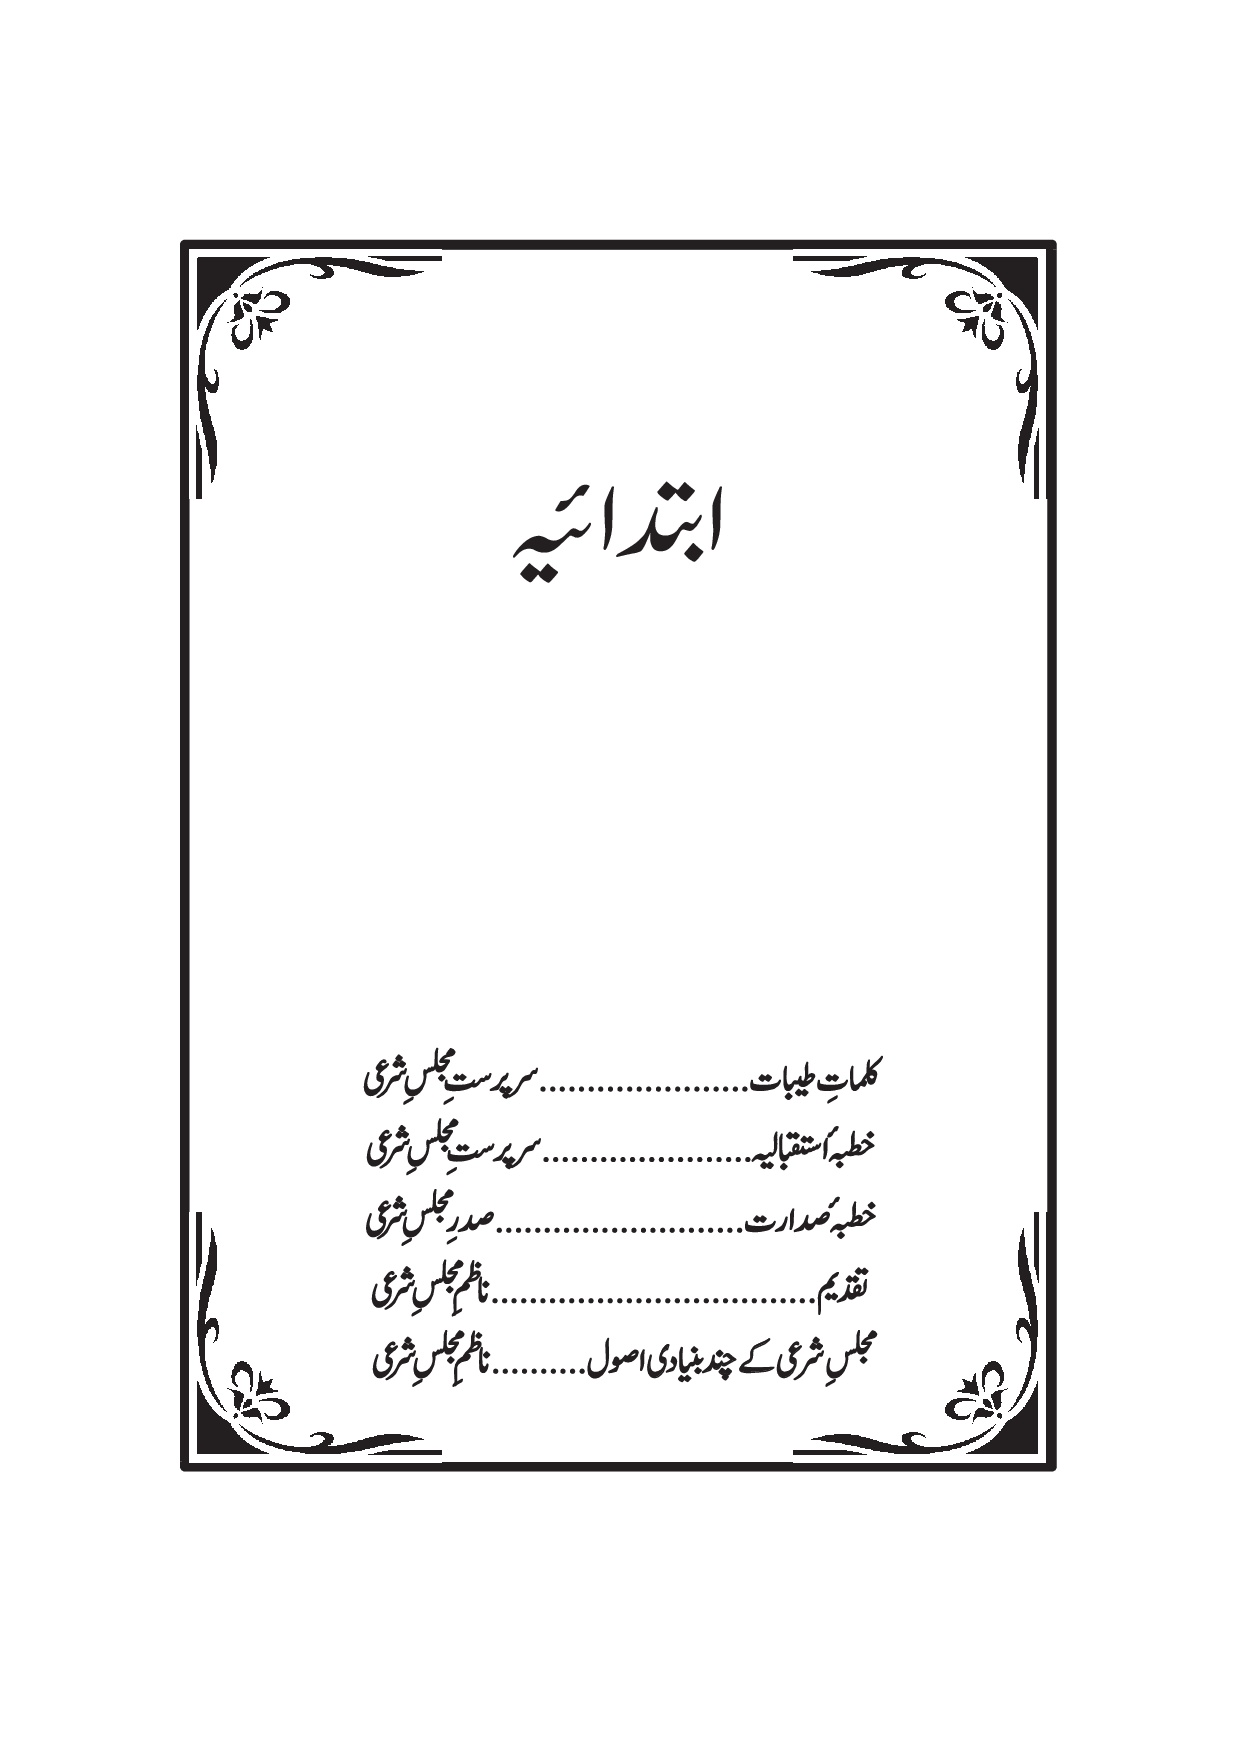 ابتدائیہ
کلماتِ طیبات......................سرپرستِ مجلسِ شرعی
خطبۂ استقبالیہ......................سرپرستِ مجلسِ شرعی
خطبۂ صدارت..........................صدرِ مجلسِ شرعی
تقدیم..................................ناظمِ مجلسِ شرعی
مجلسِ شرعی کے چند بنیادی اصول..........ناظمِ مجلسِ شرعی